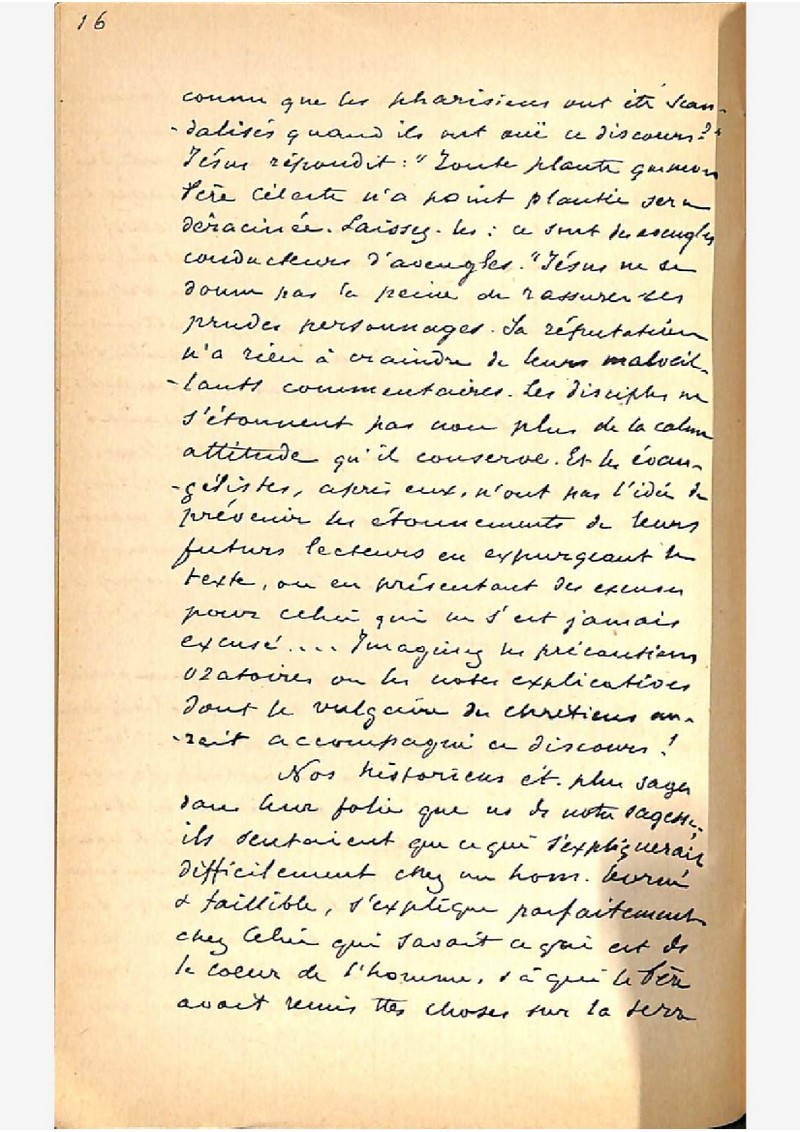 16
connu que les pharisiens ont été scan-
-dalisés quand ils ont ouï ce discours?"
Jésus répondit: "Toute plante que mon
Père Céleste n'a point plantée sera
déracinée. Laissez-les: ce sont des aveugles
conducteurs d'aveugles." Jésus ne se
donne pas la peine de rassurer ces
prudes personnages. Sa réputation
n'a rien à craindre de leurs malveil-
-lants commentaires. Les disciples ne
s'étonnent pas non plus de la calme
attitude qu'il conserve. Et les évan-
-gélistes, après eux, n'ont pas l'idée de
prévenir les étonnements de leurs
futurs lecteurs en expurgeant le
texte, ou en présentant des excuses
pour celui qui ne s'est jamais
excusé.... Imaginez les précautions
oratoires ou les notes explicatives
dont le vulgaire des chrétiens au-
-rait accompagné ce discours!
Nos historiens ét. plus sages
dans leur folie que ns ds notre sagesse;
ils sentaient que ce qui s'expliquerait
difficilement chez un hom. borné
& faillible, s'explique parfaitement
chez Celui qui savait ce qui est ds
le coeur de l'homme, & à qui le Père
avait remis ttes choses sur la terre